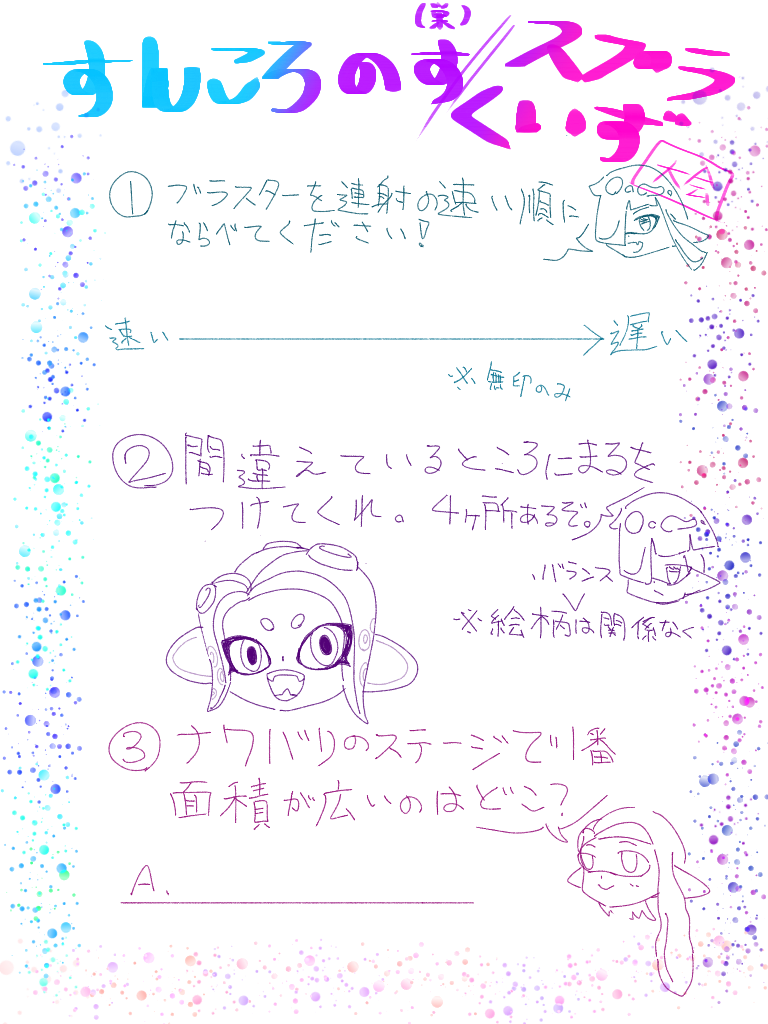 (巣)
すんころのす/スプラ
くいず
大会
① ブラスターを連射の速い順に
ならべてください!
速い → 遅い
※無印のみ
② 間違えているところにまるを
つけてくれ。4ヶ所あるぞ。
バランス
※絵柄は関係なく
③ ナワバリのステージで1番
面積が広いのはどこ?
A.